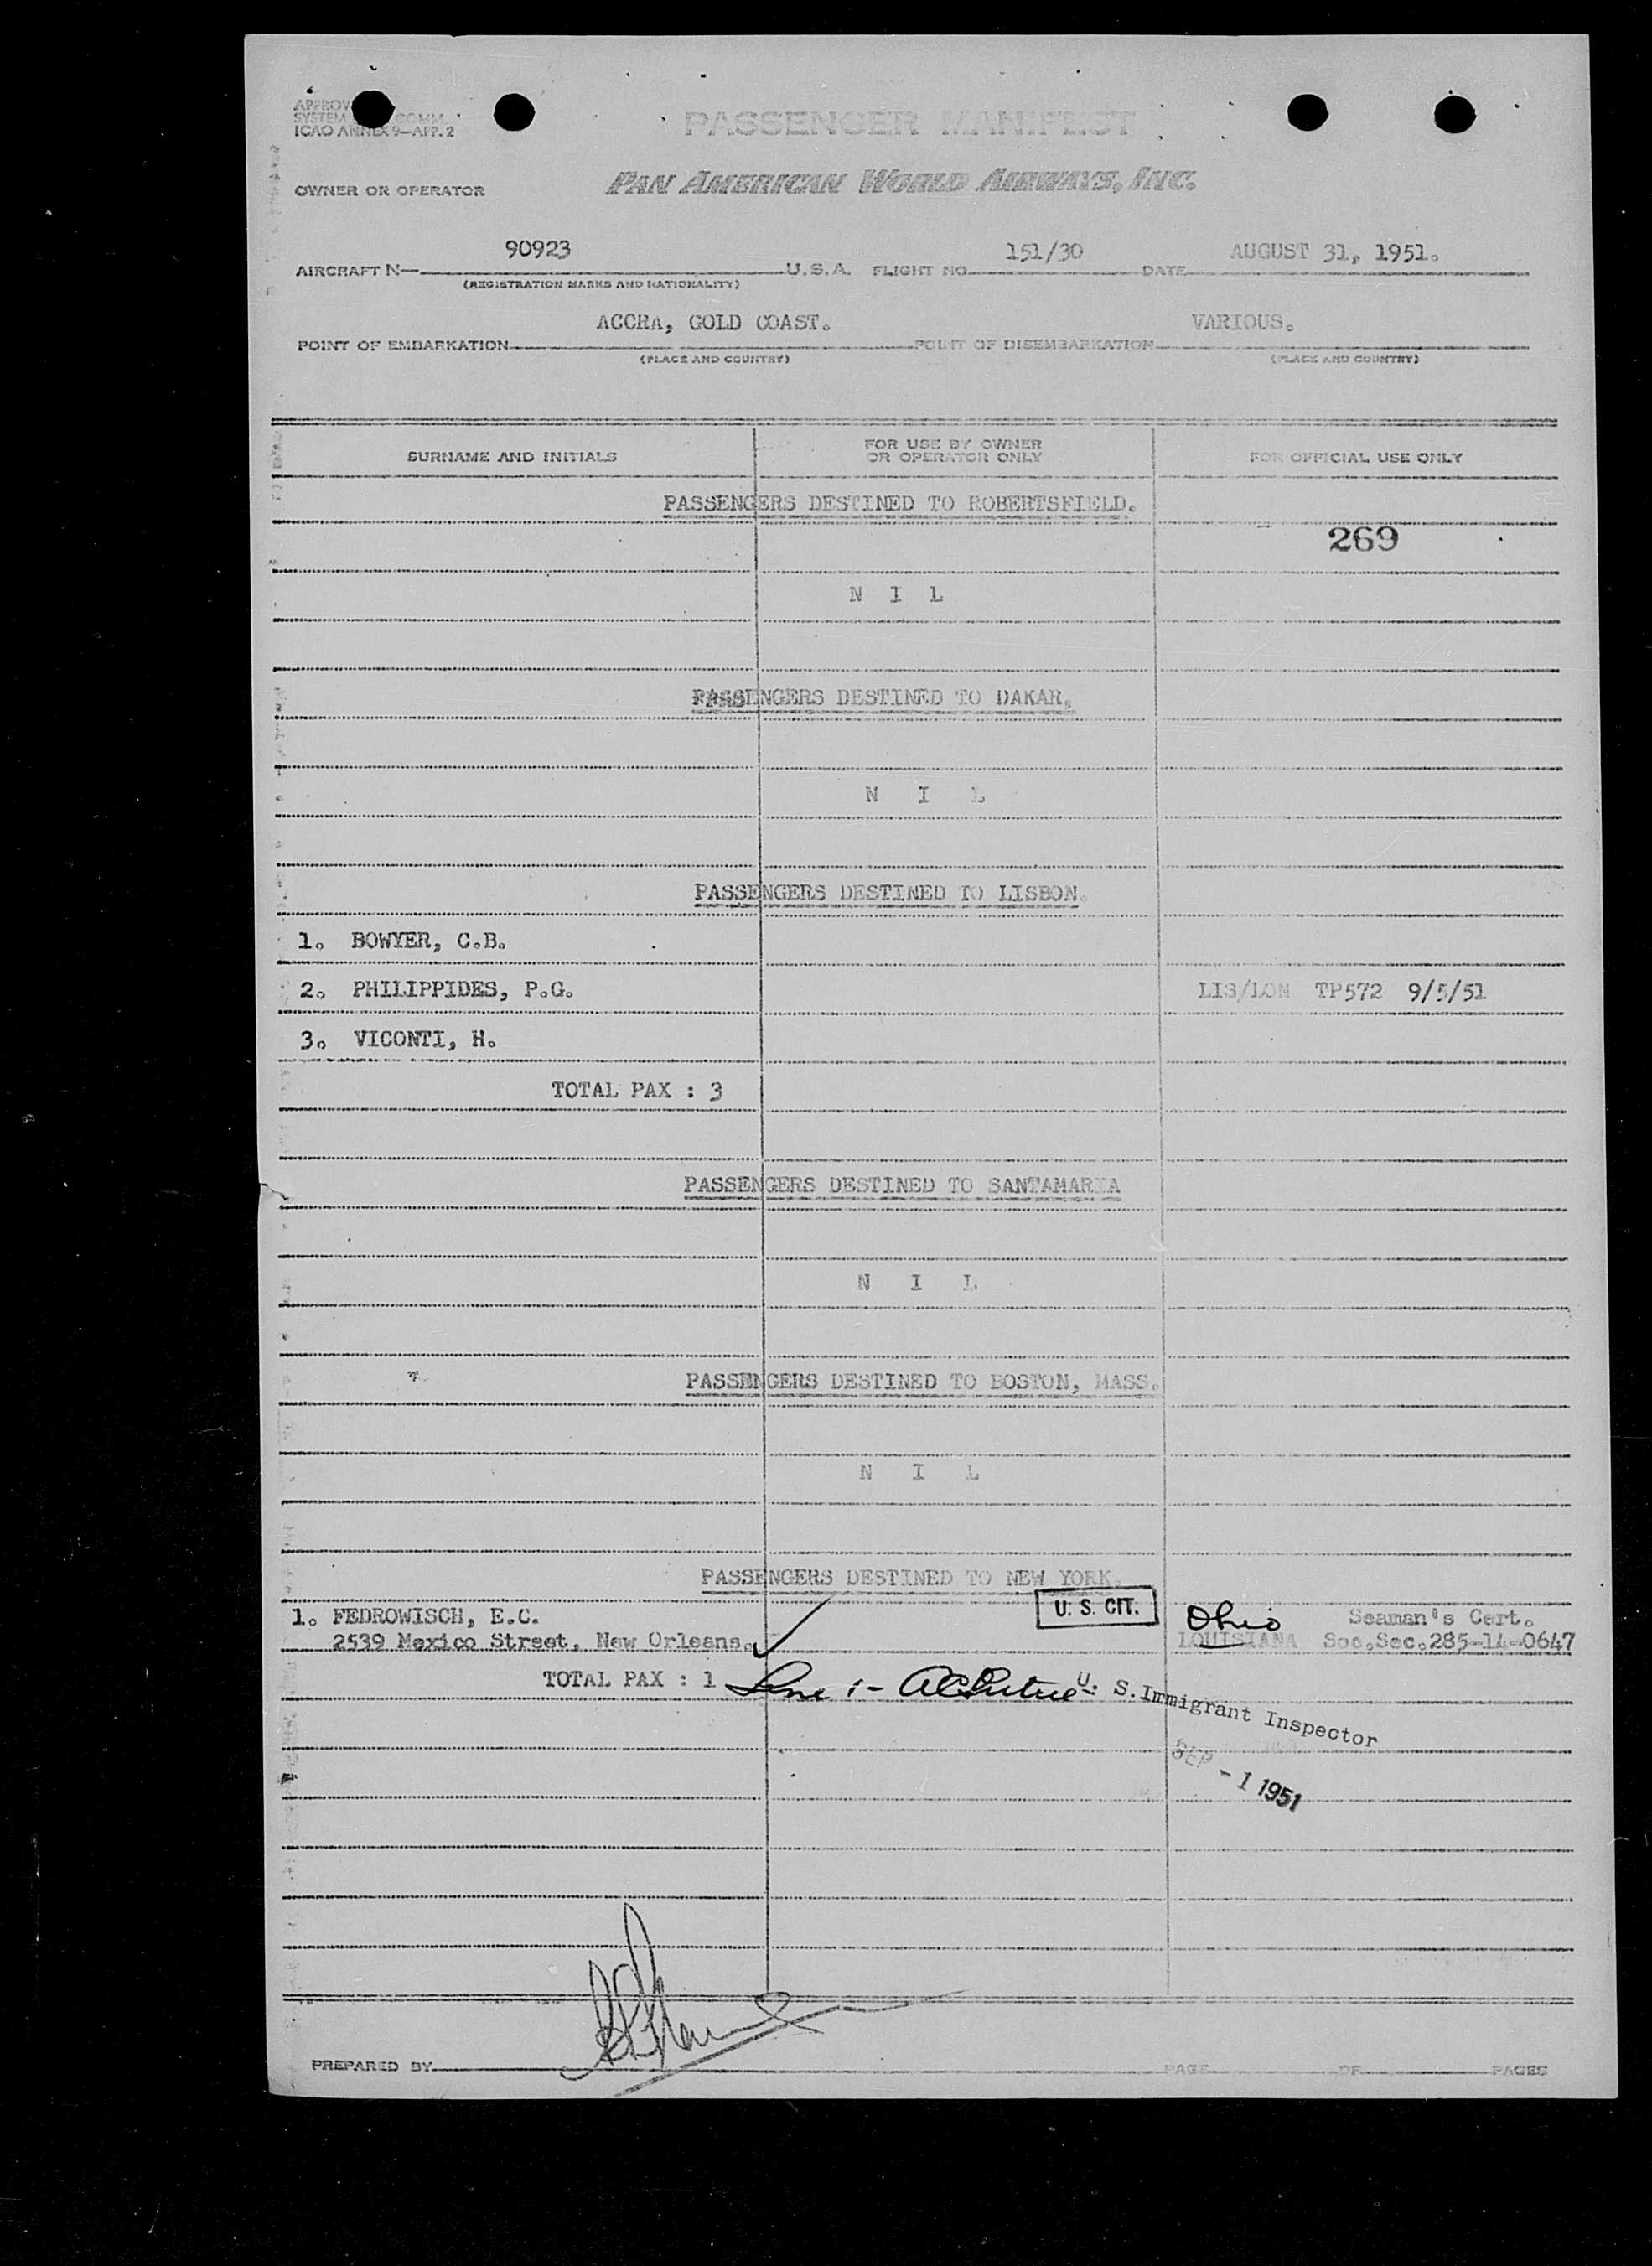 APPROV
SYSTEM COMM.
ICAO ANNEX 9—APP. 2
PASSENGER MANIFEST
OWNER OR OPERATOR PAN AMERICAN WORLD AIRWAYS, INC.
90923 151/30 AUGUST 31, 1951.
AIRCRAFT N— U.S.A. FLIGHT NO. DATE
(REGISTRATION MARKS AND NATIONALITY)
ACCRA, GOLD COAST. VARIOUS.
POINT OF EMBARKATION POINT OF DISEMBARKATION
(PLACE AND COUNTRY) (PLACE AND COUNTRY)
SURNAME AND INITIALS FOR USE BY OWNER OR OPERATOR ONLY FOR OFFICIAL USE ONLY
PASSENGERS DESTINED TO ROBERTSFIELD.
269
N I L
PASSENGERS DESTINED TO DAKAR.
N I L
PASSENGERS DESTINED TO LISBON.
1. BOWYER, C.B.
2. PHILIPPIDES, P.G. LIS/LON TP572 9/5/51
3. VICONTI, H.
TOTAL PAX : 3
PASSENGERS DESTINED TO SANTAMARIA
N I L
PASSENGERS DESTINED TO BOSTON, MASS.
N I L
PASSENGERS DESTINED TO NEW YORK.
1. FEDROWISCH, E.C. U. S. CIT. Ohio Seaman's Cert.
2539 Mexico Street, New Orleans. LOUISIANA Soc.Sec.285-14-0647
TOTAL PAX : 1 U. S. Immigrant Inspector
SEP - 1 1951
PREPARED BY PAGE OF PAGES